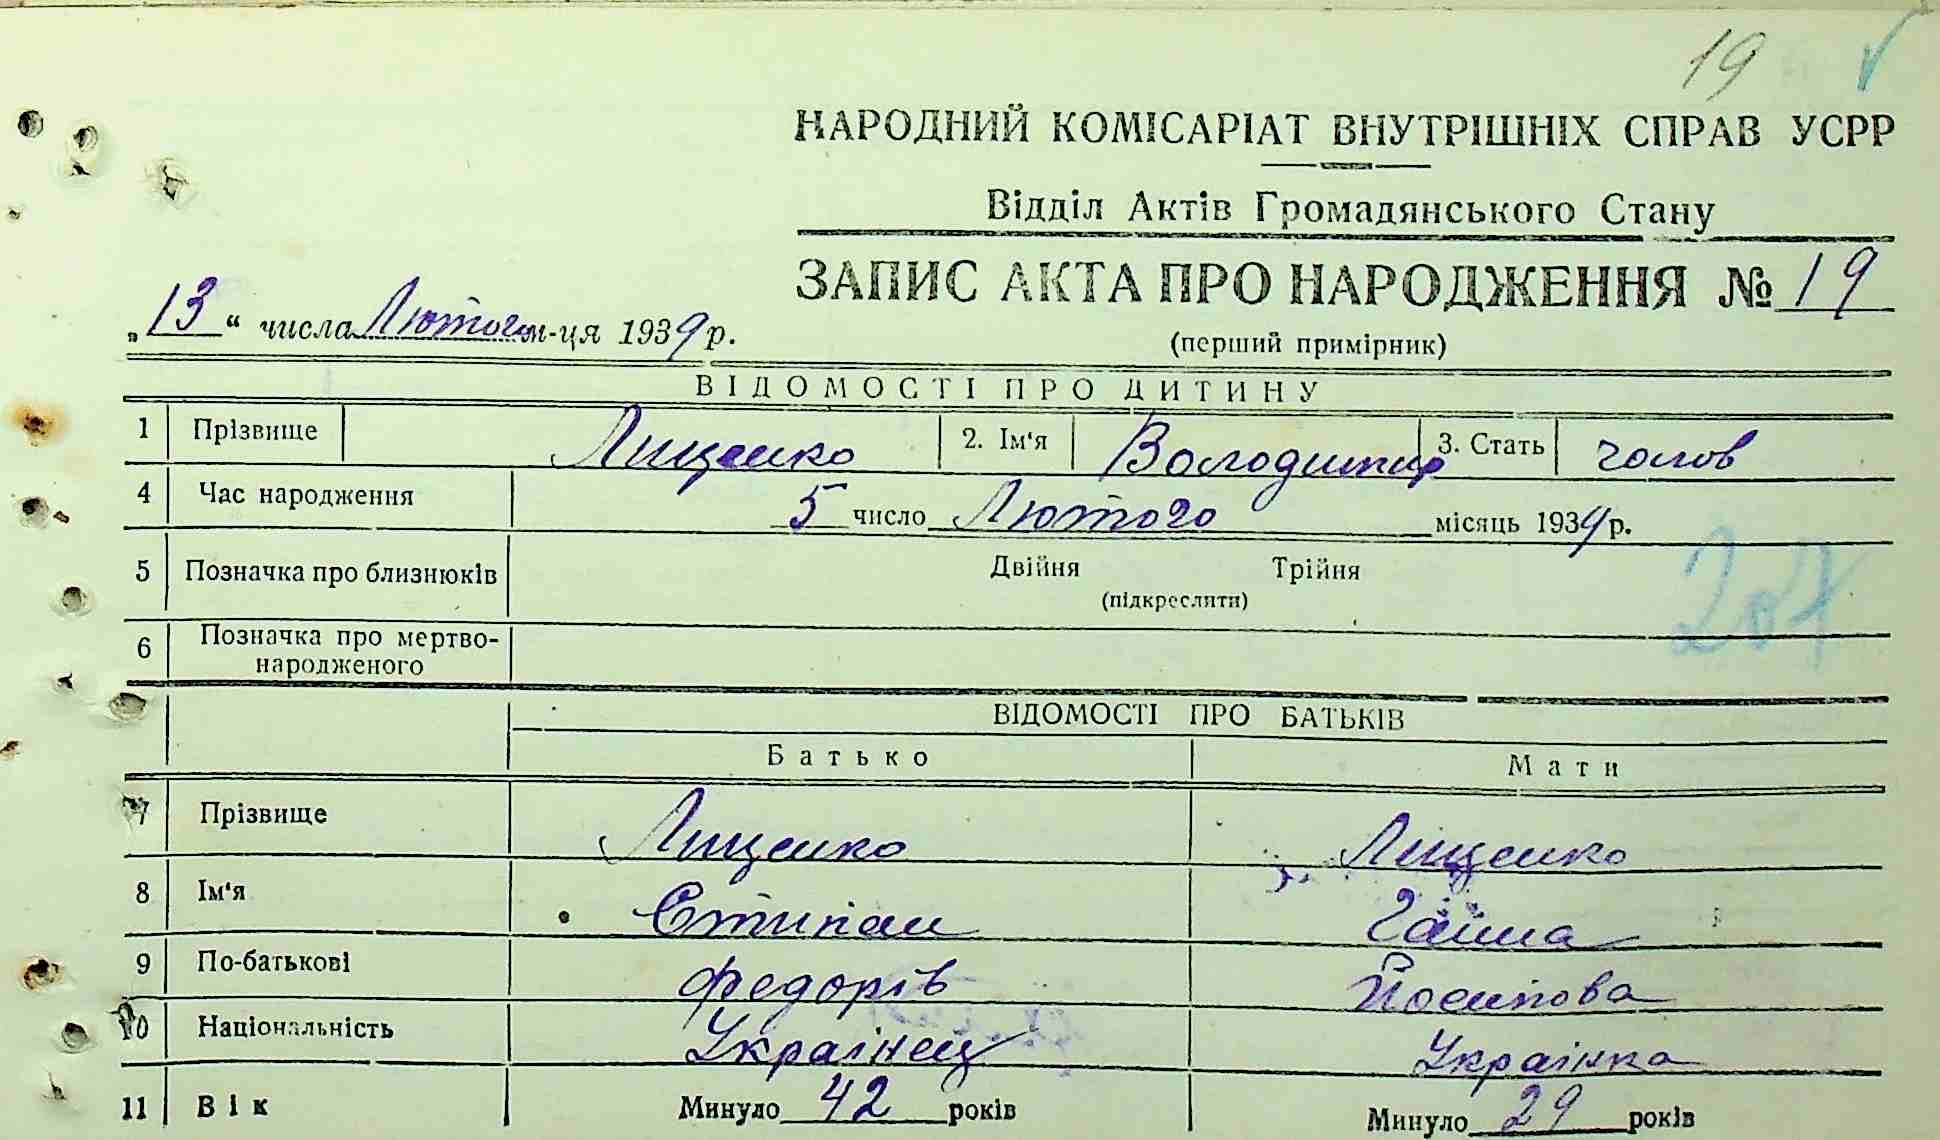 19
НАРОДНИЙ КОМІСАРІАТ ВНУТРІШНІХ СПРАВ УСРР
Відділ Актів Громадянського Стану
ЗАПИС АКТА ПРО НАРОДЖЕННЯ № 19
„13“ числа Лютого м-ця 1939 р.
(перший примірник)
ВІДОМОСТІ ПРО ДИТИНУ
1 Прізвище Лищенко 2. Ім'я Володимир 3. Стать чолов
4 Час народження 5 число Лютого місяць 1939 р.
5 Позначка про близнюків Двійня Трійня
(підкреслити)
6 Позначка про мертво-
народженого
ВІДОМОСТІ ПРО БАТЬКІВ
Батько Мати
7 Прізвище Лищенко Ліщенко
8 Ім'я Стипан Ганна
9 По-батькові Федорів Йосипова
10 Національність Українец Українка
11 Вік Минуло 42 років Минуло 29 років